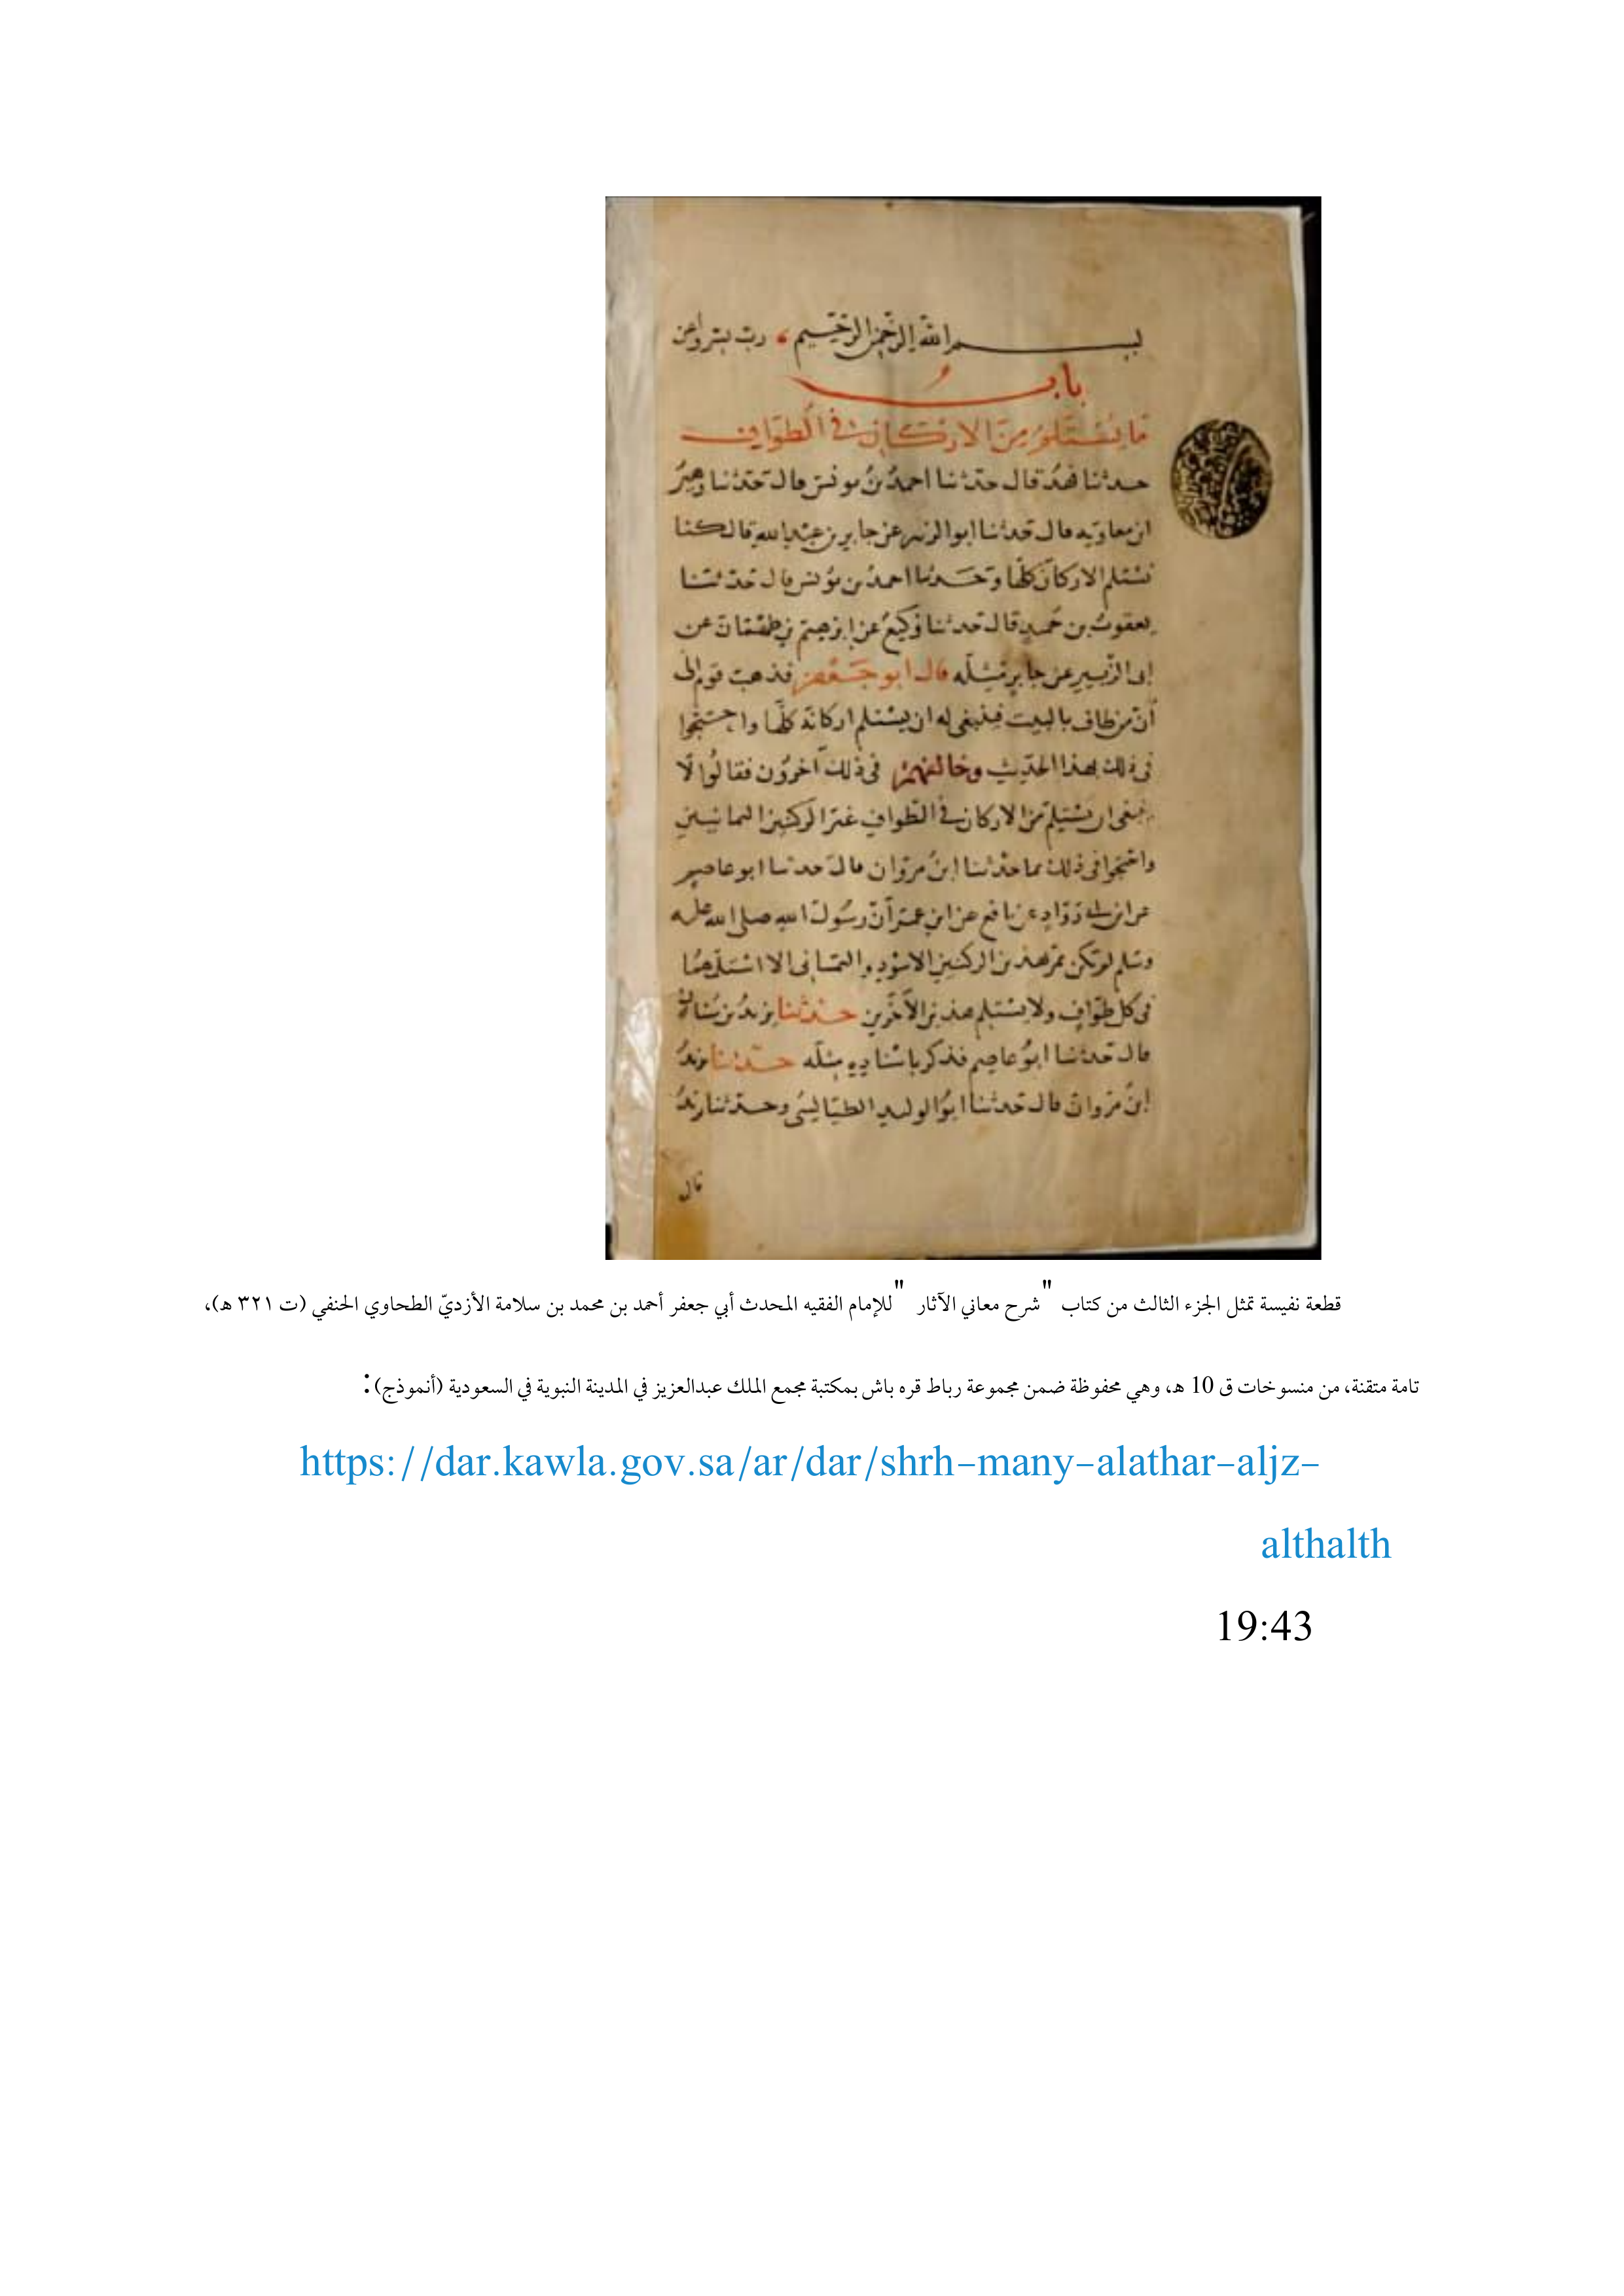 بسم الله الرحمن الرحيم رب يسر واعن
باب
ما يستلم من الاركان في الطواف
حدثنا فهد قال حدثنا احمد بن يونس قال حدثنا زهير
ابن معاويه قال حدثنا ابو الزبير عن جابر بن عبد الله قال كنا
نستلم الاركان كلها وحدثنا احمد بن يونس قال حدثنا
يعقوب بن حميد قال حدثنا وكيع عن ابرهيم بن طهمان عن
ابى الزبير عن جابر مثله قال ابو جعفر فذهب قوم الى
ان من طاف بالبيت فينبغى له ان يستلم اركانه كلها واحتجوا
فى ذلك بهذا الحديث وخالفهم فى ذلك آخرون فقالوا لا
ينبغى ان يستلم من الاركان في الطواف غير الركنين اليمانيين
واحتجوا فى ذلك بما حدثنا ابن مرزوق قال حدثنا ابو عاصم
عن ابن ابى رواد عن نافع عن ابن عمر ان رسول الله صلى الله عليه
وسلم لم يكن يمر بهذين الركنين الاسود واليمانى الا استلمهما
فى كل طواف ولا يستلم هذين الآخرين حدثنا يزيد بن سنان
قال حدثنا ابو عاصم فذكر باسناده مثله حدثنا يزيد
ابن مروان قال حدثنا ابو الوليد الطيالسى وحدثنا
قال
قطعة نفيسة تمثل الجزء الثالث من كتاب "شرح معاني الآثار" للإمام الفقيه المحدث أبي جعفر أحمد بن محمد بن سلامة الأزديّ الطحاوي الحنفي (ت ٣٢١ ه)،
تامة متقنة، من منسوخات ق 10 ه، وهي محفوظة ضمن مجموعة رباط قره باش بمكتبة مجمع الملك عبدالعزيز في المدينة النبوية في السعودية (أنموذج):
https://dar.kawla.gov.sa/ar/dar/shrh-many-alathar-aljz-
althalth
19:43